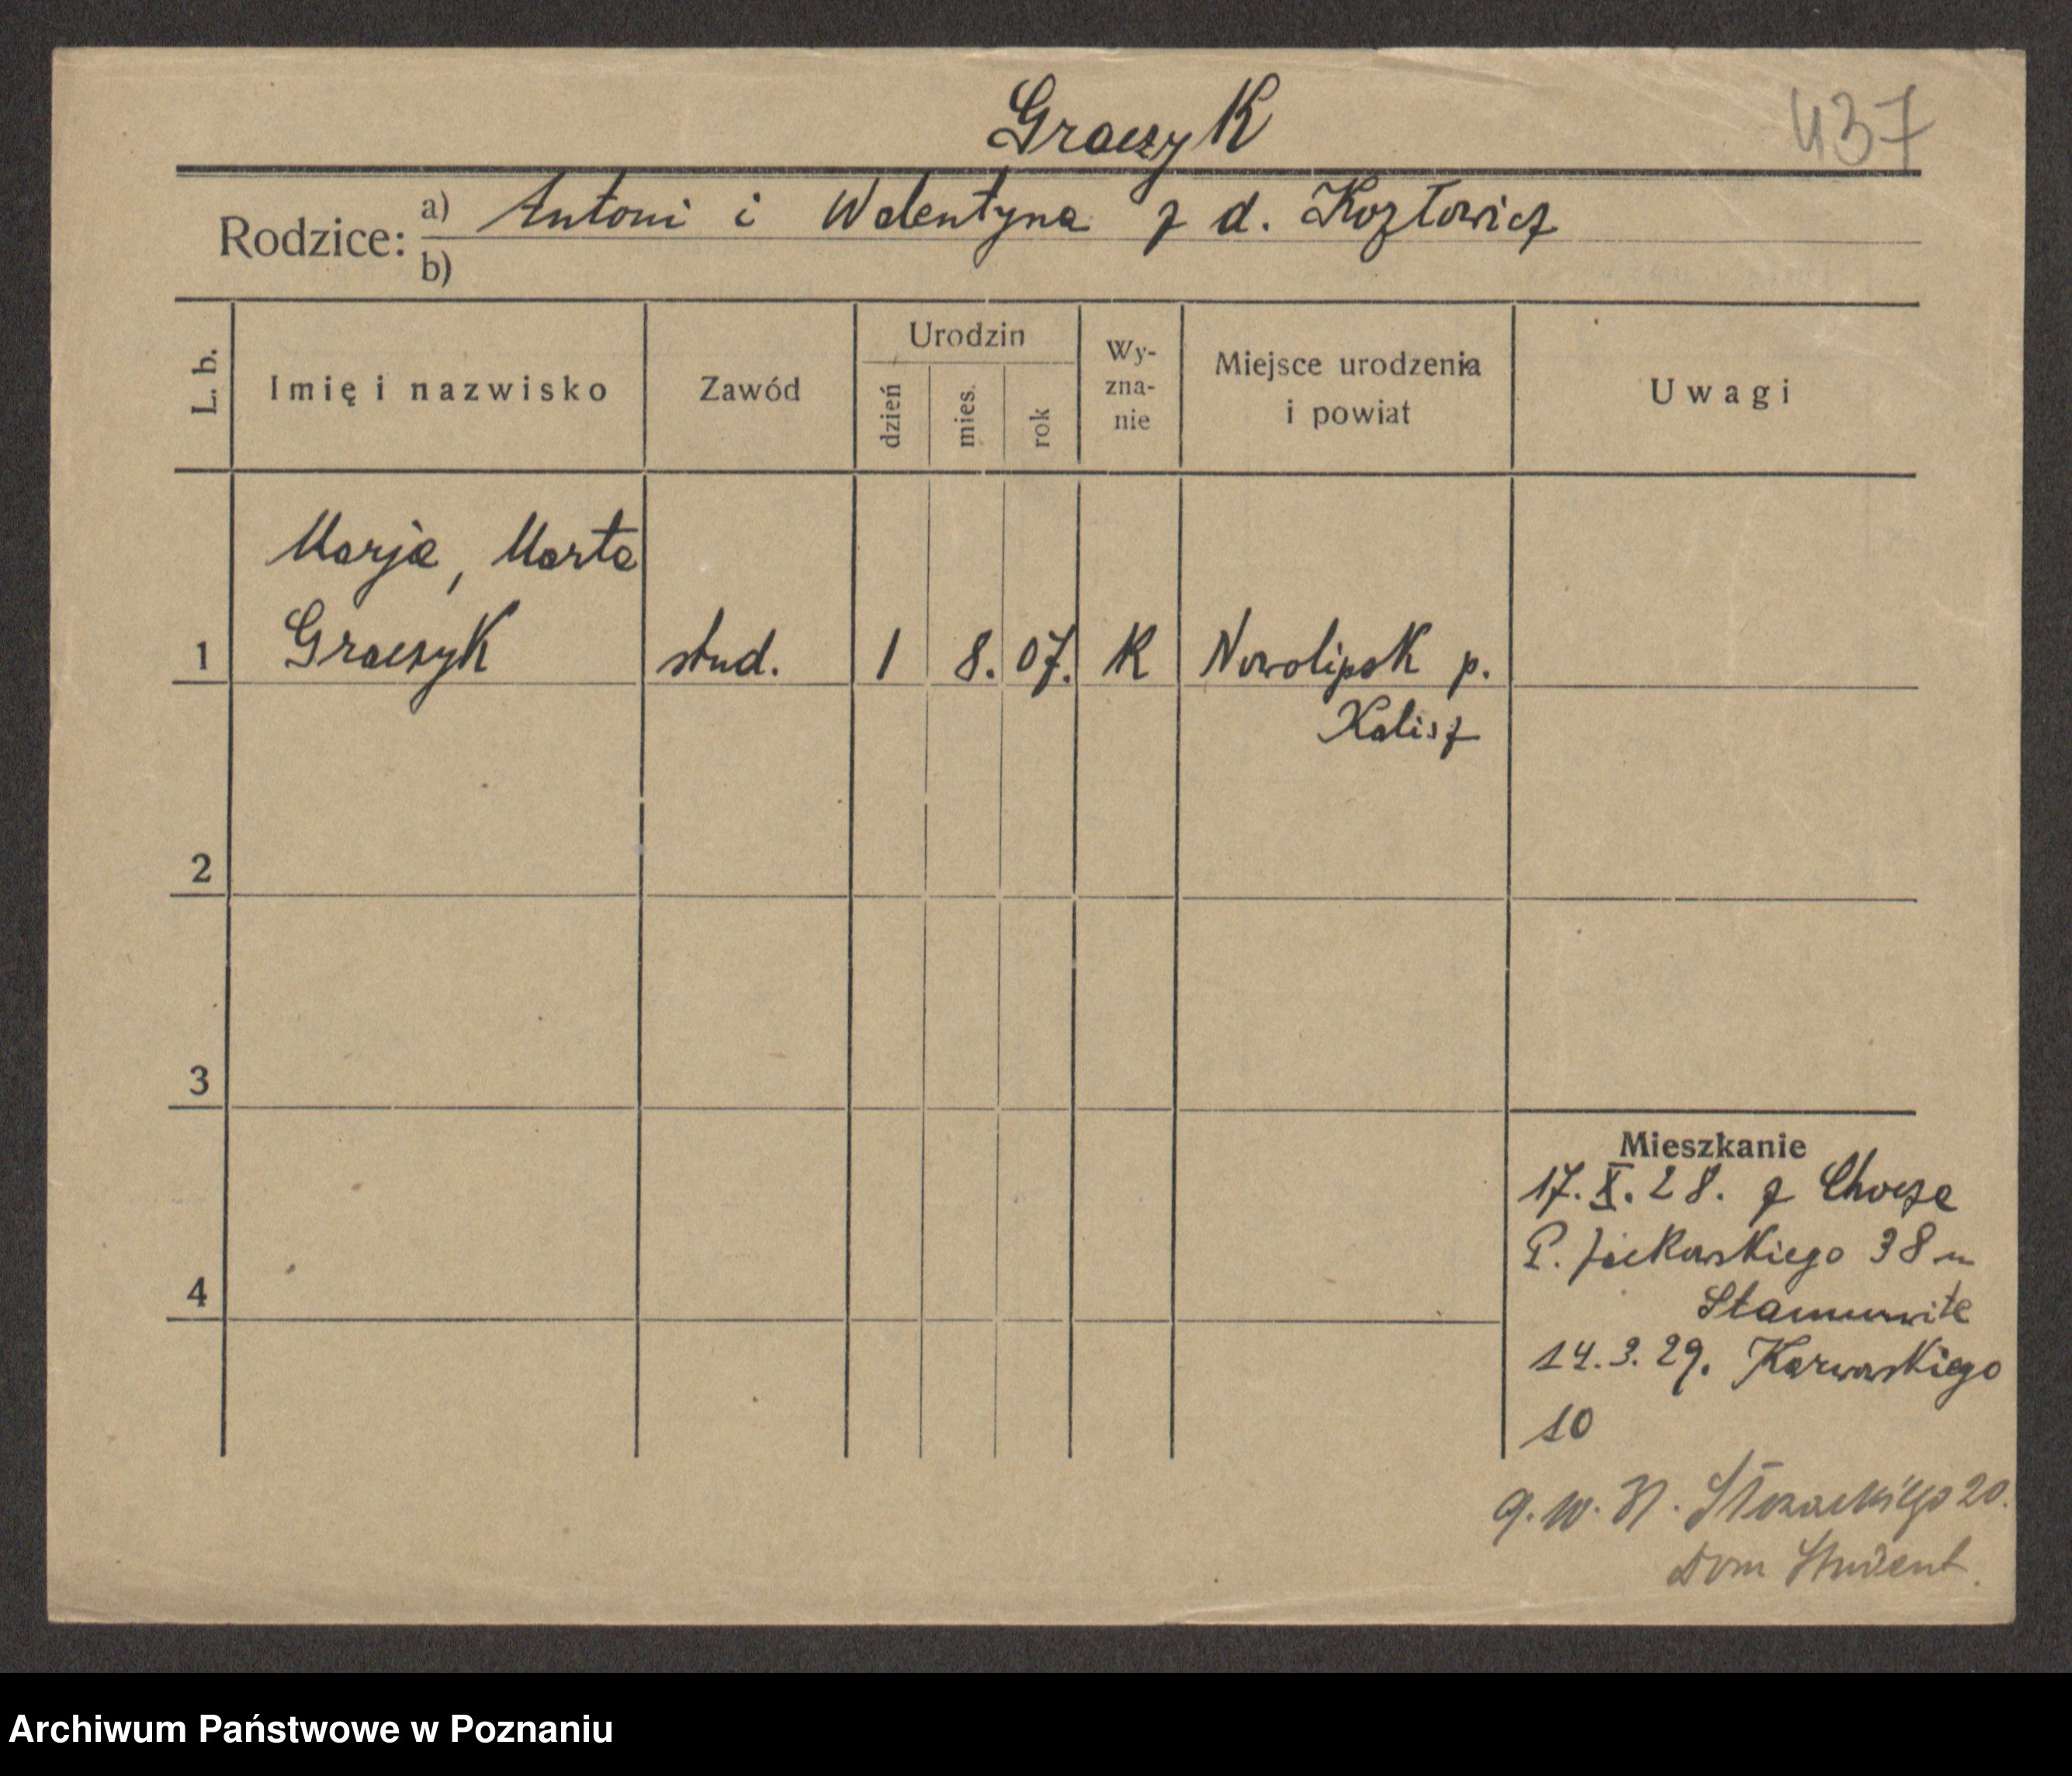 Graczyk
437
Rodzice: a) Antoni i Walentyna z d. Kozłowicz
b)
L. b. Imię i nazwisko Zawód Urodzin dzień mies. rok Wy-zna-nie Miejsce urodzenia i powiat Uwagi
Marja, Marta
1 Graczyk stud. 1 8. 07. K Nowolipsk p.
Kalisz
2
3
4
Mieszkanie
17. X. 28. z Chocza
P. Jackowskiego 38 m
14. 3. 29. Karwowskiego
10
9. 10. 31. Słowackiego 20.
Dom Student.
Archiwum Państwowe w Poznaniu